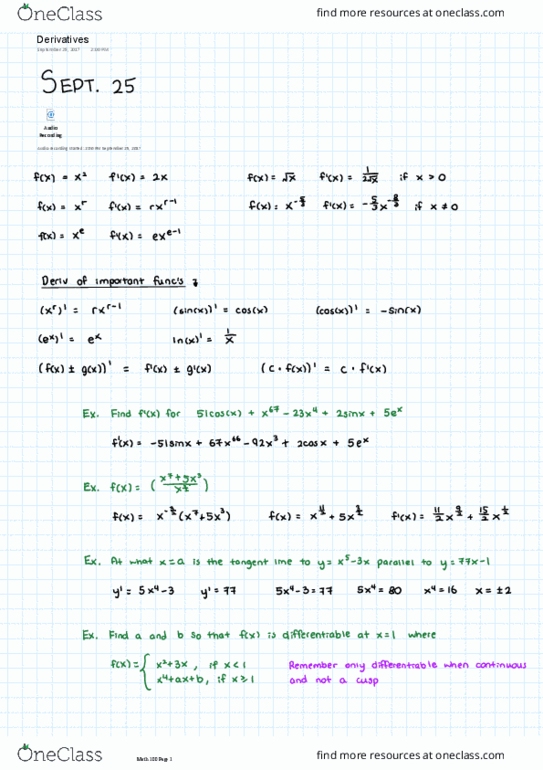 OneClass find more resources at oneclass.com
Derivatives
September 25, 2017
SEPT. 25
Audio
Recording
f(x) = x² f'(x) = 2x f(x) = √x f'(x) = 1/(2√x) if x > 0
f(x) = xʳ f'(x) = rxʳ⁻¹ if x ≠ 0
f(x) = xᵉ f'(x) = exᵉ⁻¹
Deriv of important func's
(xʳ)' = rxʳ⁻¹ (sin(x))' = cos(x) (cos(x))' = -sin(x)
(eˣ)' = eˣ ln(x)' = 1/x
(f(x) ± g(x))' = f'(x) ± g'(x) (c · f(x))' = c · f'(x)
Ex. Find f'(x) for 51cos(x) + x⁶⁷ - 23x⁴ + 2sinx + 5eˣ
f'(x) = -51sinx + 67x⁶⁶ - 92x³ + 2cosx + 5eˣ
Ex. f(x) =
f(x) = (x⁷+5x³) f(x) = f'(x) =
Ex. At what x=a is the tangent line to y = x⁵-3x parallel to y = 77x-1
y' = 5x⁴-3 y' = 77 5x⁴-3 = 77 5x⁴ = 80 x⁴ = 16 x = ±2
Ex. Find a and b so that f(x) is differentiable at x=1 where
f(x) = { x²+3x, if x < 1 Remember only differentiable when continuous
x⁴+ax+b, if x ≥ 1 and not a cusp
OneClass Math 100 Page 1 find more resources at oneclass.com